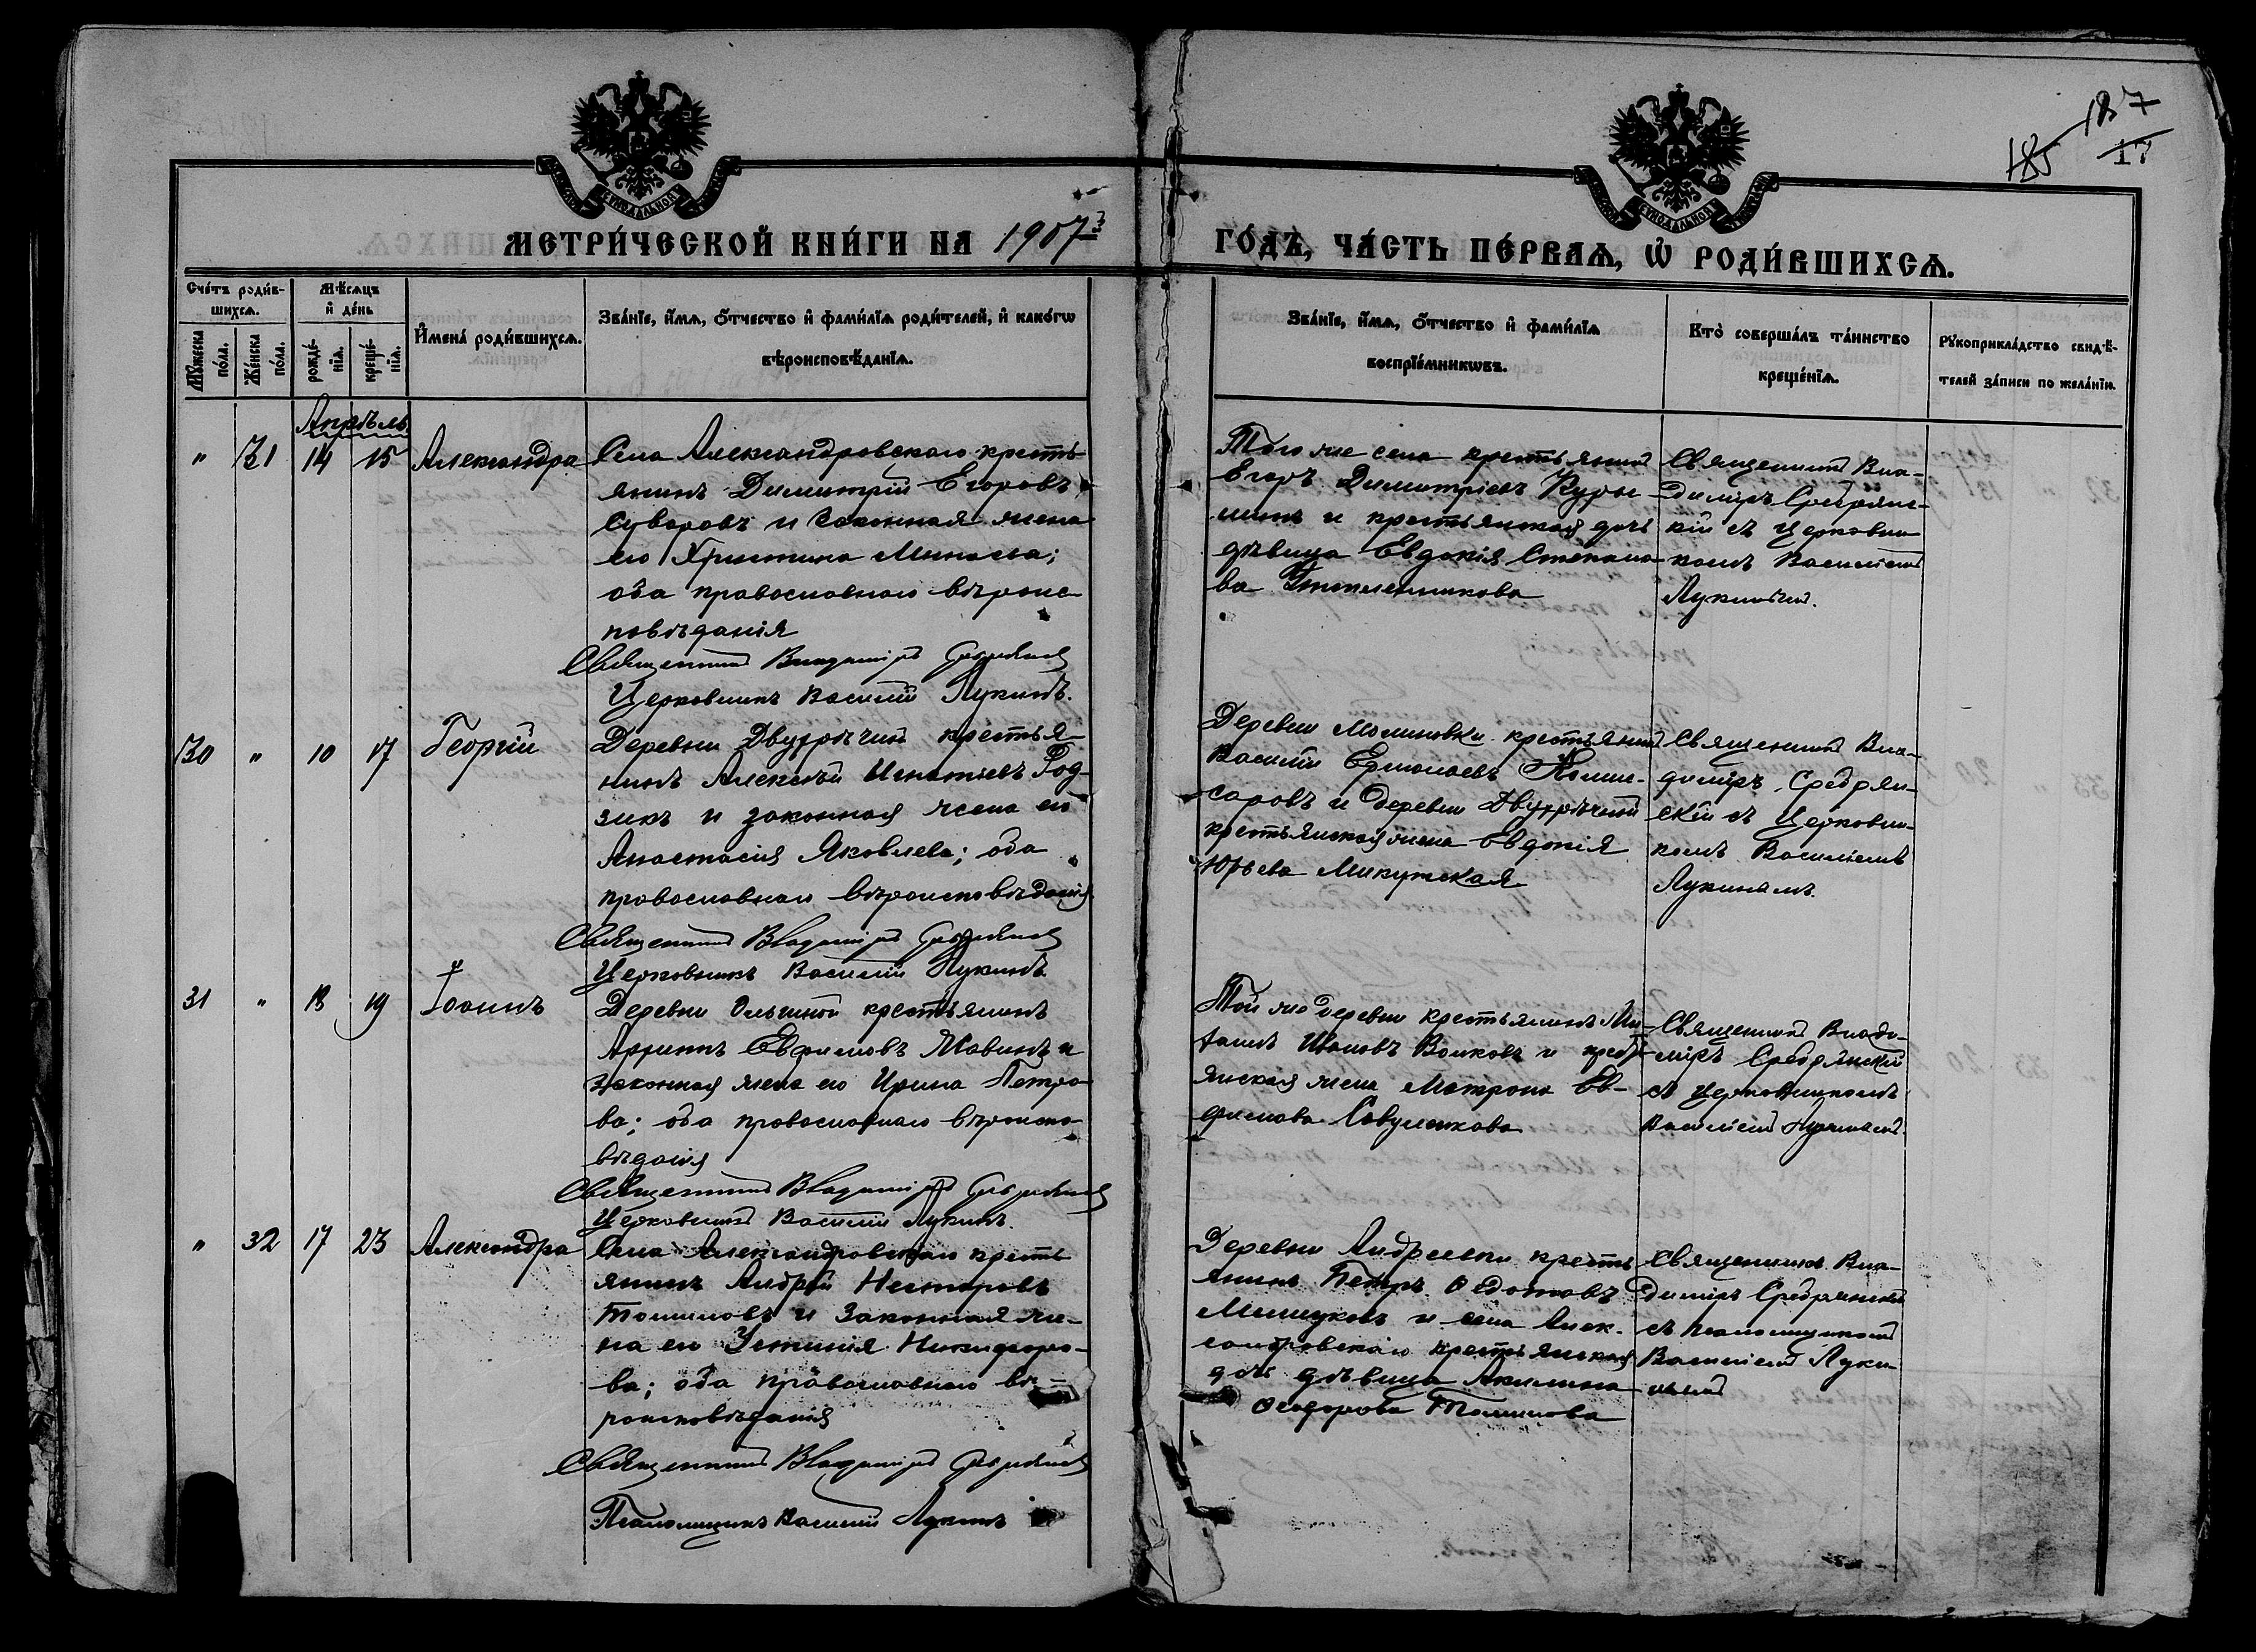 187
185 17
МЕТРИ́ЧЕСКОЙ КНИ́ГИ НА 1907 й
ГО́ДЪ, ЧА́СТЬ ПЕ́РВАѦ, Ѡ҆ РОДИ́ВШИХСѦ.
Сче́тъ роди́в-
шихсѧ.
Мꙋ́жеска по́ла.
Же́нска по́ла.
Мѣ́сѧцъ
и҆ де́нь
рожде́-
нїѧ.
креще́-
нїѧ.
И҆мена̀ роди́вшихсѧ.
Зва́нїе, и҆́мѧ, ѻ҆́тчество и҆ фами́лїѧ роди́телей, и҆ како́гѡ
вѣроисповѣ́данїѧ.
Зва́нїе, и҆́мѧ, ѻ҆́тчество и҆ фами́лїѧ
воспрїе́мникѡвъ.
Кто̀ соверша́лъ та́инство
креще́нїѧ.
Рꙋкоприкла́дство свидѣ́-
телей за́писи по жела́нїю.
Апрѣль
" 31 14 15 Александра
Села Александровскаго кресть
янинъ Димитрій Егоровъ
Суворовъ и законная жена
его Христина Минаева;
оба православнаго вѣроис-
повѣданія
Священникъ Владиміръ Средрянскій
Церковникъ Василій Лукинъ.
Того же села крестьянинъ
Егоръ Димитріевъ
и крестьянская дочь
дѣвица Евдокія Степано
ва
Священникъ Вла-
диміръ Средрянс-
кій съ Церковни
комъ Василіемъ
Лукинымъ.
30 " 10 17 Георгій
Деревни Двухрѣчной крестья-
нинъ Алексѣй Игнатіевъ Род-
зикъ и законная жена его
Анастасія Яковлева; оба
православнаго вѣроисповѣданія
Священникъ Владиміръ Средрянскій
Церковникъ Василій Лукинъ
Деревни Малиновки крестьянинъ
Василій Ермолаевъ Комис-
саровъ и деревни Двухрѣчной
крестьянская жена Евдокія
Юрьева Микутская
Священникъ Вла-
диміръ Средрян-
скій съ Церковни-
комъ Василіемъ
Лукинымъ.
31 " 18 19 Іоаннъ
Деревни Ольгиной крестьянинъ
Архипъ Евфимовъ Явинъ и
законная жена его Ирина Петро
ва; оба православнаго вѣроиспо-
вѣданія
Священникъ Владиміръ Средрянскій
Церковникъ Василій Лукинъ.
Той же деревни крестьянинъ Ми-
хаилъ Ивановъ Волковъ и кресть
янская жена Матрона Ев-
фимова Савушкова
Священникъ Влади-
міръ Средрянскій
съ Церковникомъ
Василіемъ Лукинымъ.
" 32 17 23 Александра
Села Александровскаго кресть
янинъ Андрей Несторовъ
Томиловъ и законная же-
на его Устинія Никифоро-
ва; оба православнаго вѣ-
роисповѣданія
Священникъ Владиміръ Средрянскій
Псаломщикъ Василій Лукинъ
Деревни Андреевки кресть
янинъ Петръ Ѳедотовъ
и села Алек-
сандровскаго крестьянская
дочь дѣвица Акилина
Ѳеодорова Томилова
Священникъ Вла-
диміръ Средрянскій
съ псаломщикомъ
Василіемъ Луки
нымъ